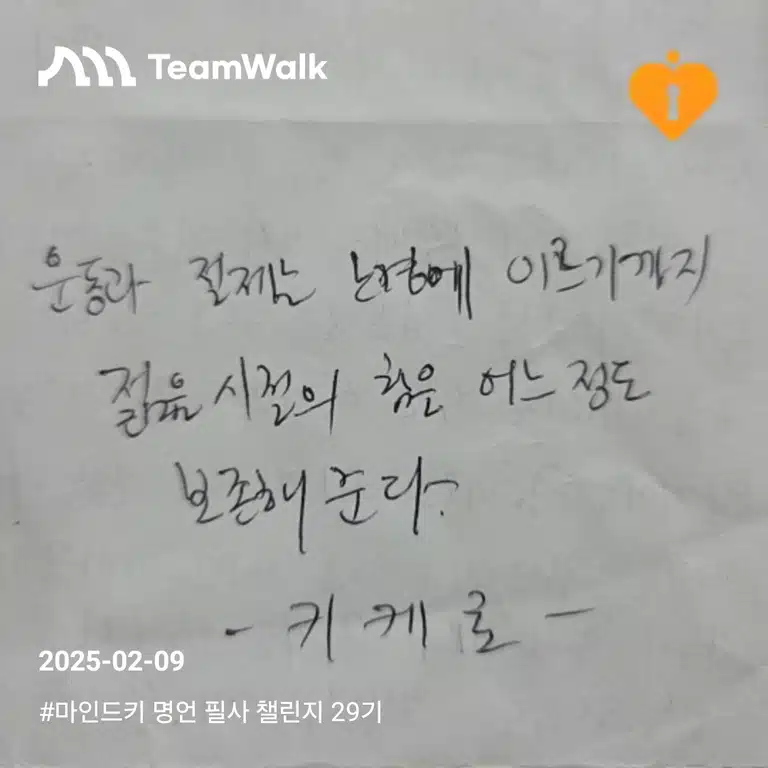 TeamWalk
운동과 절제는 노경에 이르기까지
젊음 시절의 힘은 어느 정도
보존해 준다.
- 키케로 -
2025-02-09
#마인드키 명언 필사 챌린지 29기